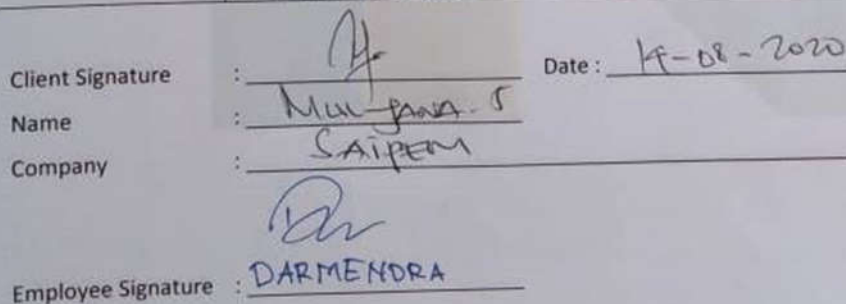 Client Signature : Date : 14-08-2020
Name : Mulyana. S
Company : SAIPEM
Employee Signature : DARMENDRA